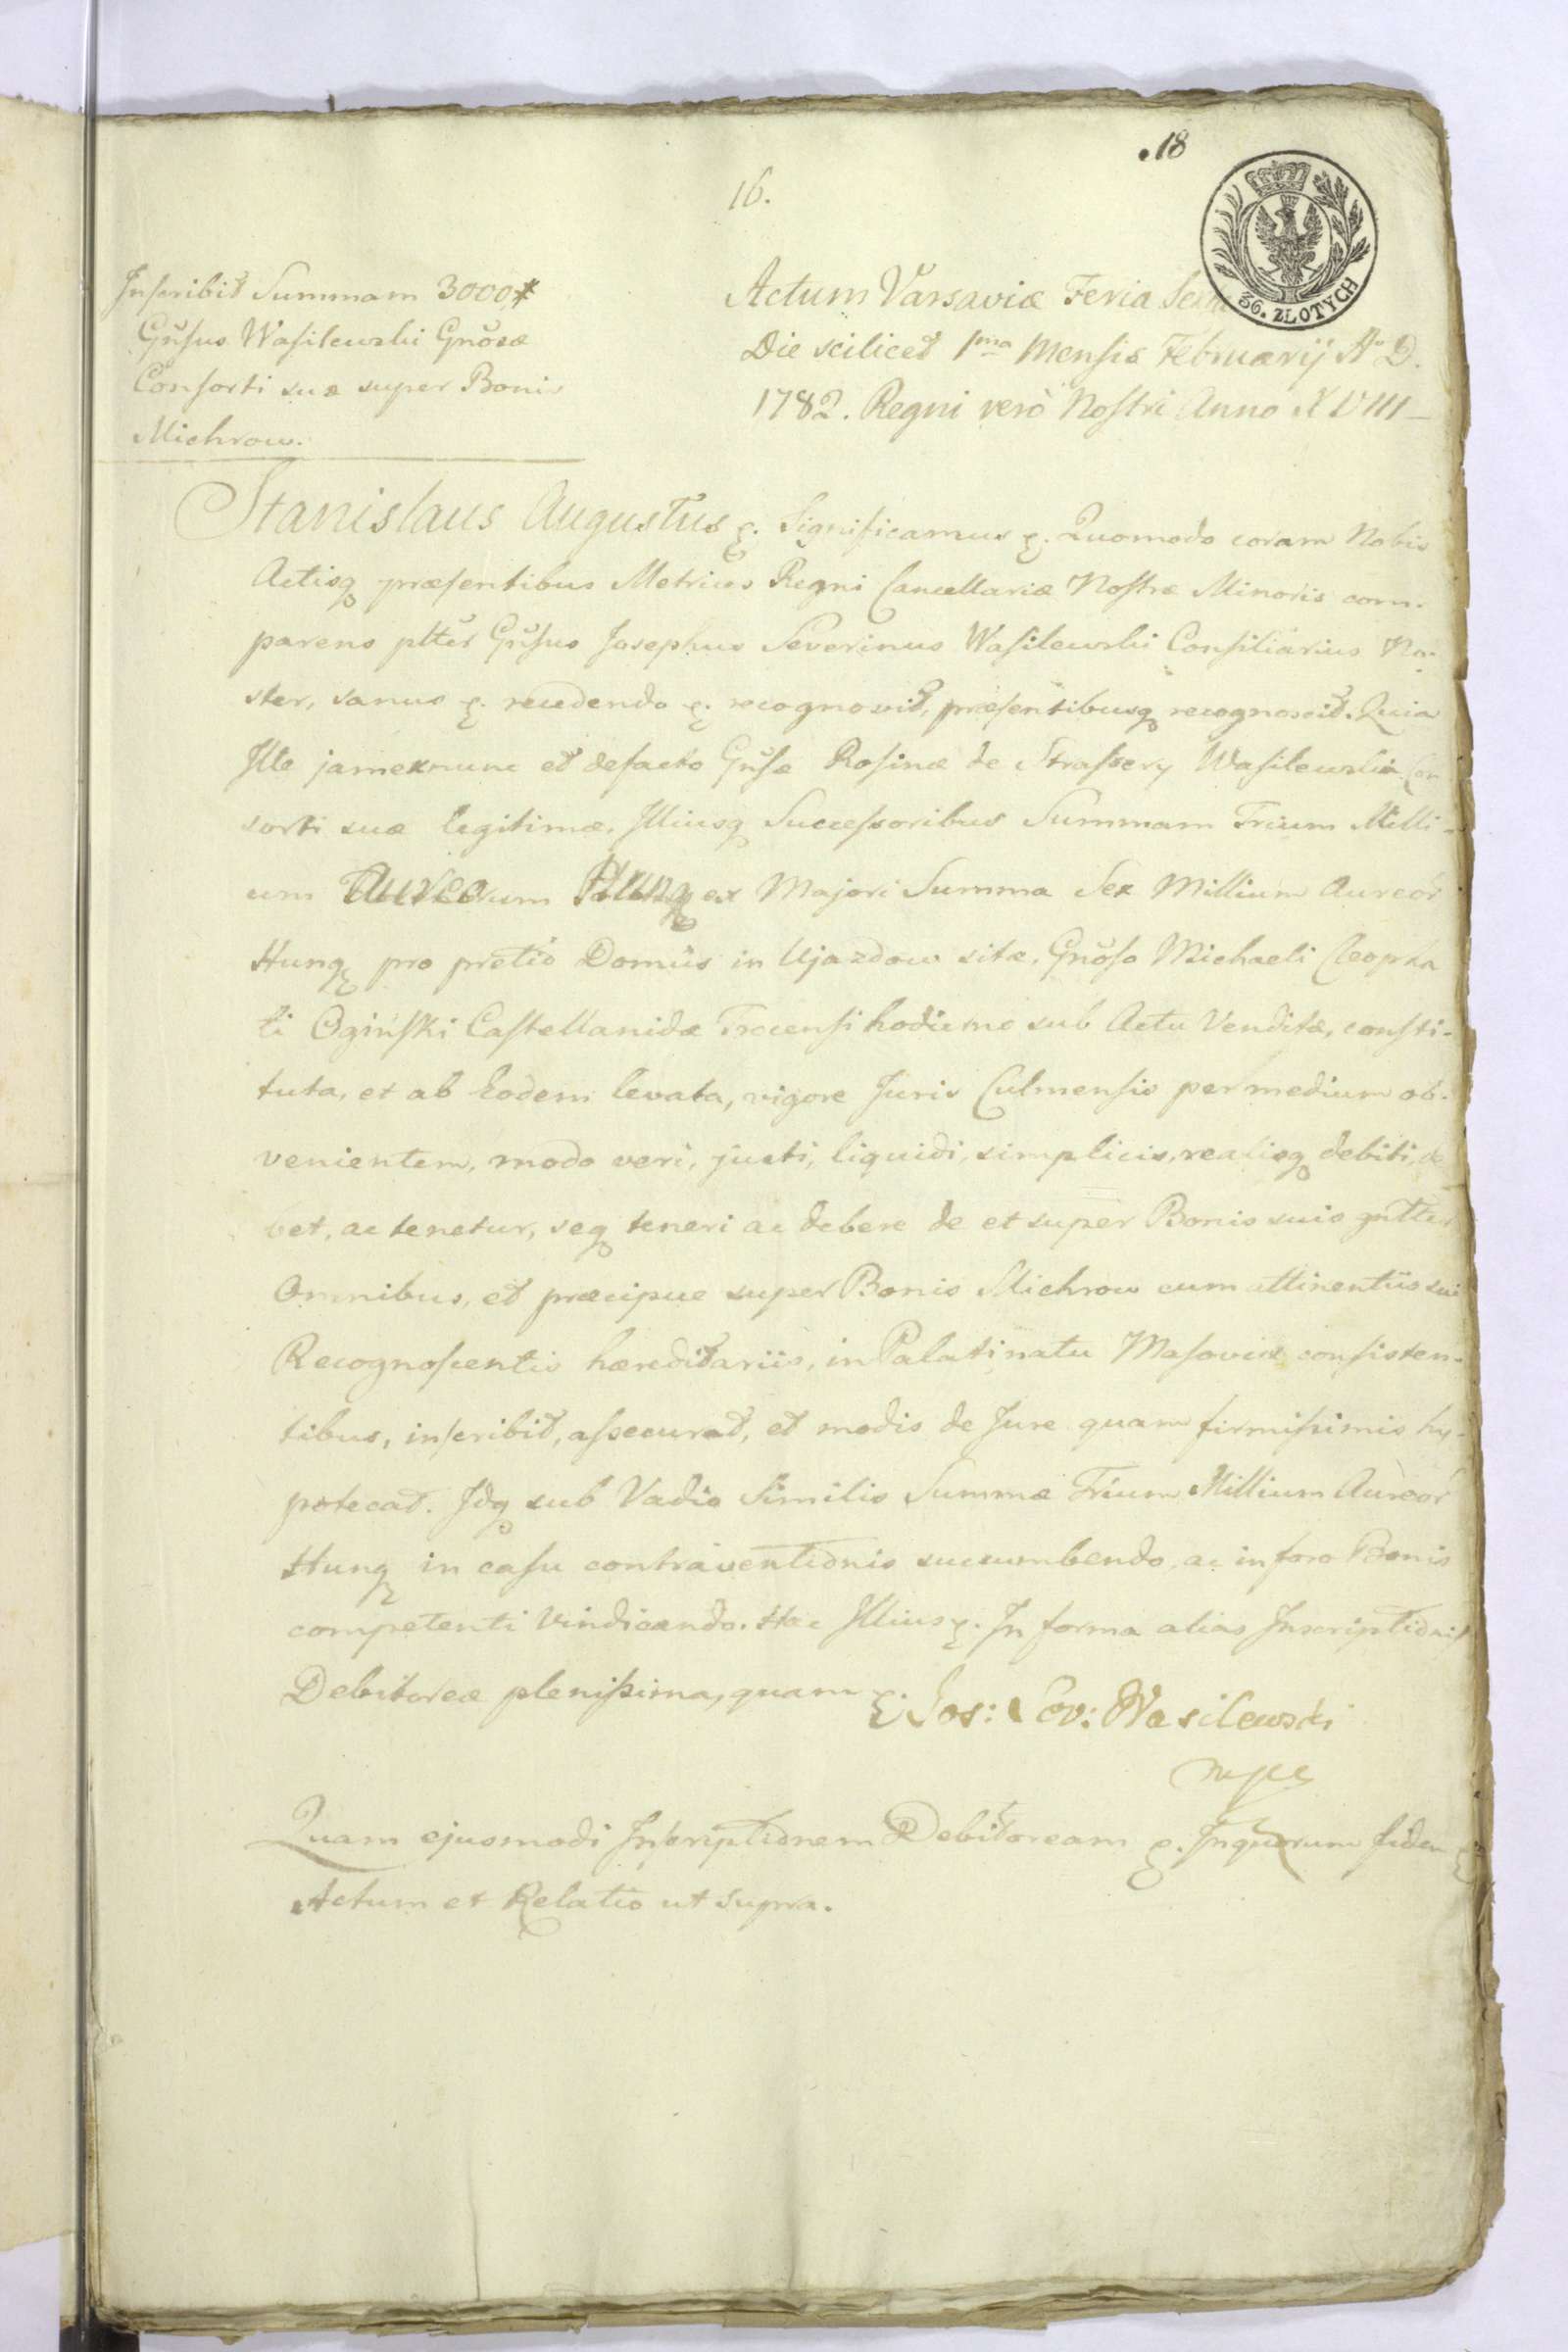 .18
16.
36. ZŁOTYCH
Inscribit Summam 3000 #
Gnsus Wasilewski Gnosæ
Consorti suæ super Bonis
Michrow.
Actum Varsaviæ Feria
Die scilicet 1ma Mensis Februarij Ao D.
1782. Regni verò Nostri Anno XVIII
Stanislaus Augustus &. Significamus &. Quomodo coram Nobis
Actisq præsentibus Metrices Regni Cancellariæ Nostræ Minoris com-
parens plter Gnsus Josephus Severinus Wasilewski Consiliarius No-
ster, sanus &. recedendo &. recognovit, præsentibusq recognoscit. Quia
Ille jamexnunc et defacto Gnsæ Rosinæ de Strassery Wasilewska Con
sorti suæ legitimæ, Illiusq Successoribus Summam Trium Milli-
um Aureorum Hung ex Majori Summa Sex Millium Aureor
Hung pro pretio Domûs in Ujazdow sitæ, Gnoso Michaeli Cleopha
ti Ogiński Castellanidæ Trocensi hodierno sub Actu Venditæ, consti-
tuta, et ab Eodem levata, vigore Juris Culmensis per medium ob-
venientem, modo veri, justi, liquidi, simplicis, realisq debiti, de
bet, ac tenetur, seq teneri ac debere de et super Bonis suis gnlter
Omnibus, et præcipue super Bonis Michrow cum attinentiis sui
Recognoscentis hæreditariis, in Palatinatu Masoviæ consisten-
tibus, inscribit, assecurat, et modis de Jure quam firmissimis hy-
potecat. Idq sub Vadio Similis Summæ Trium Millium Aureor
Hung in casu contraventionis succumbendo, ac in foro Bonis
competenti Vindicando. Hac Illius &. In forma alias Inscriptionis
Debitoreæ plenissima, quam &. Jos: Sev: Wasilewski
mpa
Quam ejusmodi Inscriptionem Debitoream &. In quorum fidem &
Actum et Relatio ut supra.